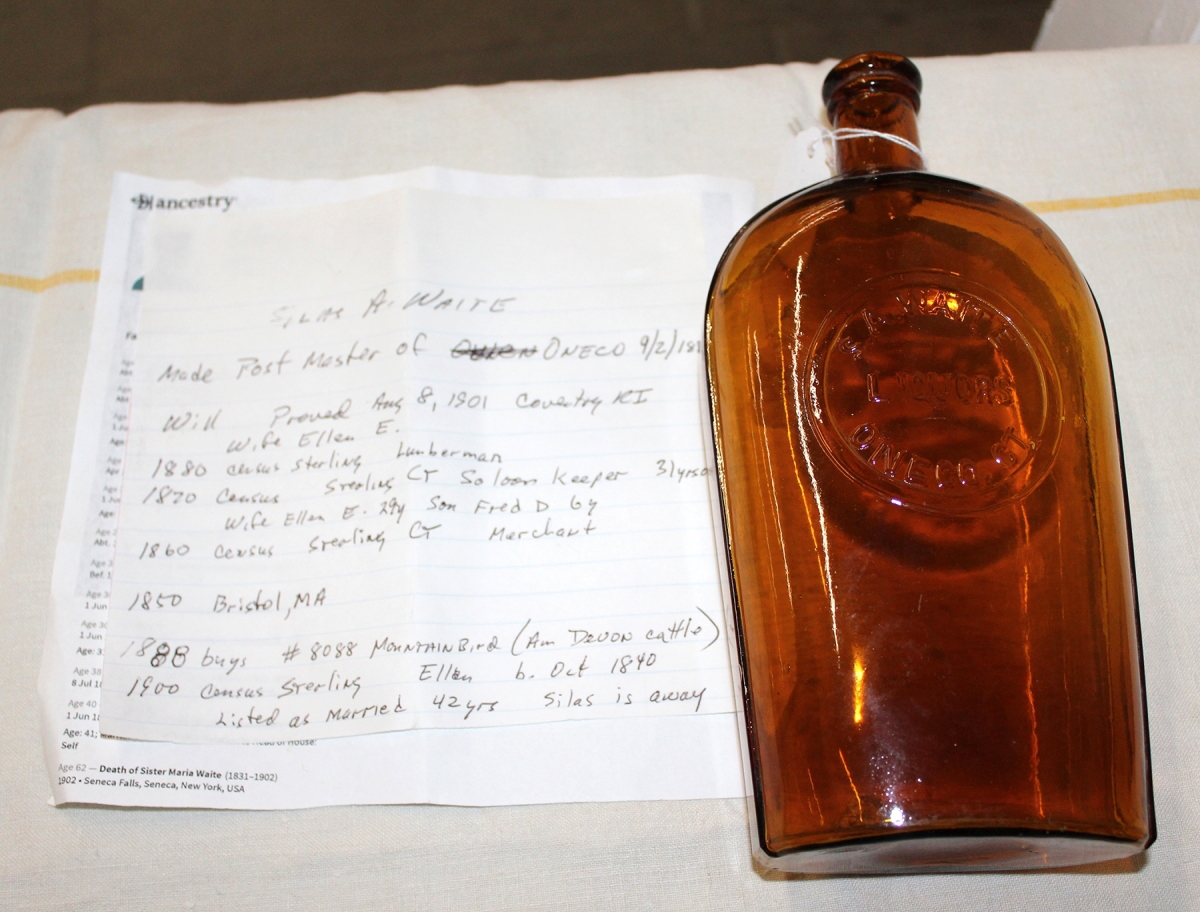 ancestry
SILAS A. WAITE
Made Post Master of ONECO 9/2/18
Will Proved Aug 8, 1901 Coventry RI
Wife Ellen E.
1880 census Sterling Lumberman
1870 Census Sterling CT Saloon Keeper 31yrs
Wife Ellen E. 29y Son Fred D 6y
1860 census Sterling CT Merchant
1850 Bristol, MA
1888 buys #8088 MOUNTAIN Bird (Am DEVON cattle)
1900 census Sterling Ellen b. Oct 1840
Listed as Married 42yrs Silas is away
1 Jun
Age 38
8 Jul 18
Age 40
1 Jun 18
Age: 41;
Self
Age 62 — Death of Sister Maria Waite (1831–1902)
1902 • Seneca Falls, Seneca, New York, USA
S.A. WAITE
LIQUORS
ONECO. CT.